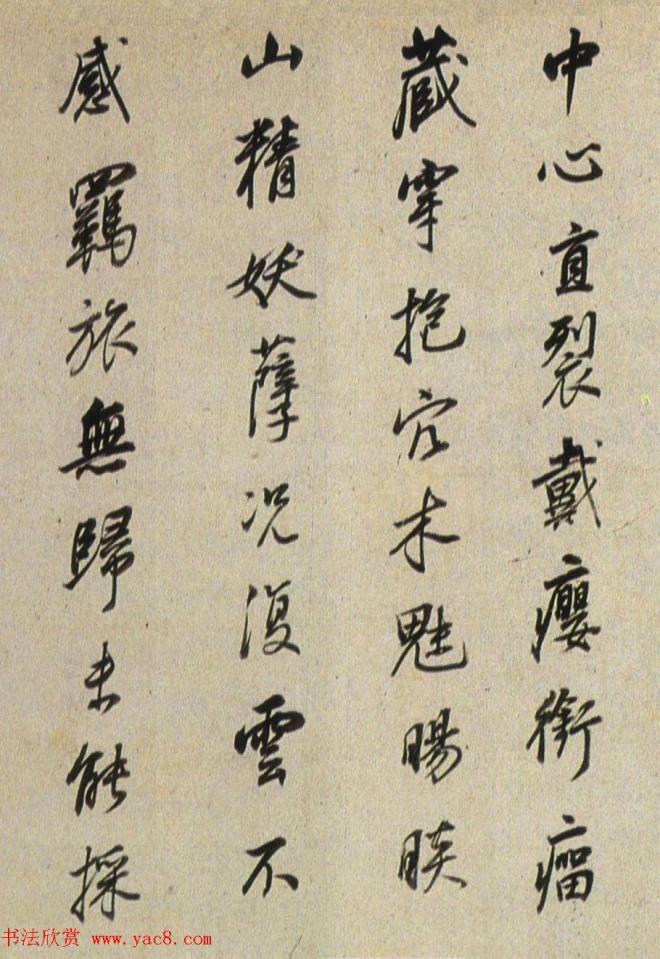 中心直裂戴癭銜瘤
藏穿抱穴木魅睗睒
山精妖孽况復雲不
感羈旅無歸未能採
书法欣赏 www.yac8.com